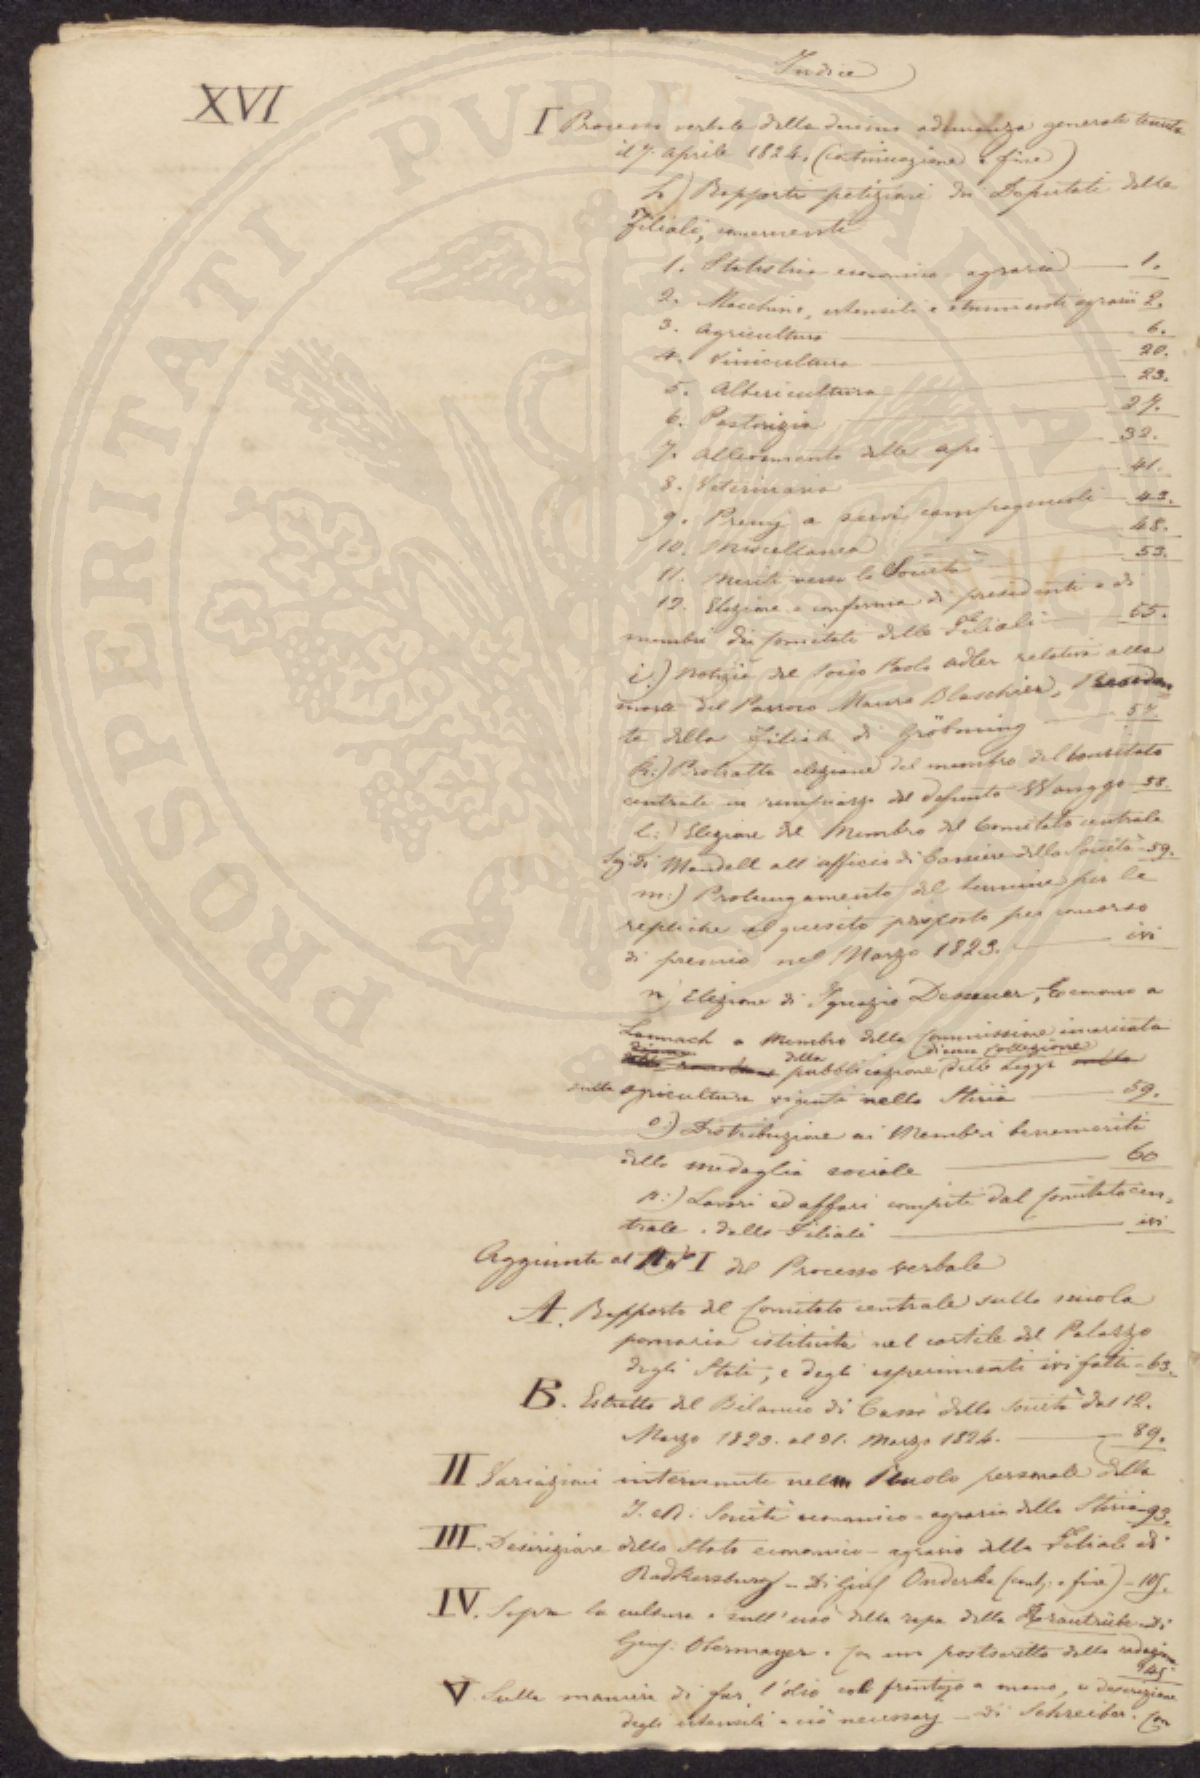 Indice
XVI
I Processo verbale della decima adunanza generale tenuta
il 7. Aprile 1824. (continuazione e fine)
h.) Rapporti petizioni dei Deputati delle
Filiali, concernenti
1. Statistica economico-agraria 1.
2. Macchine, utensili e strumenti agrarii 2.
3. Agricoltura 6.
4. Vinicultura 20.
5. Albericultura 23.
6. Pastorizia 27.
7. Allevamento delle api 32.
8. Veterinaria 41.
9. Premj a servi campagnuoli 43.
10. Miscellanea 48.
11. Meriti verso la Società 53.
12. Elezione e conferma di presidenti e di
membri dei comitati delle Filiali 55.
i.) Notizia del Socio Paolo Adler relativa alla
morte del Parroco Mauro Blaschier,
te della Filiale di Gröbming 57.
k.) Protratta elezione del membro del Comitato
centrale in rimpiazzo del defunto Wanggo 58.
l.) Elezione del Membro del Comitato centrale
Sig. di Mandell all'officio di Cassiere della Società 59.
m.) Prolungamento del termine per le
repliche al quesito proposto pel concorso
di premio nel Marzo 1823. ivi
n.) Elezione di Ignazio Dessauer, Economo a
Lannach a Membro della Commissione incaricata
della diuna Collezione
pubblicazione delle Leggi
sulla agricultura vigenti nella Stiria 59.
o.) Distribuzione ai Membri benemeriti
della medaglia sociale 60
p.) Lavori ed affari compiti dal Comitato cen-
trale e dalle Filiali ivi
Aggiunte al N.º I del Processo verbale
A. Rapporto del Comitato centrale sulla scuola
pomaria istituita nel cortile del Palazzo
degli Stati, e degli esperimenti ivi fatti 63.
B. Estratto del Bilancio di Cassa della Società dal 12.
Marzo 1823. al 31. Marzo 1824. 89.
II Variazioni intervenute nel Ruolo personale della
I. R. Società economico-agraria della Stiria 93.
III. Descrizione dello Stato economico-agrario della Filiale di
Radkersburg - Di Gius. Onderka (cont. e fine) - 105.
IV. Sopra la cultura e sull'uso della rapa della Krautrübe - Di
Giu. Obermayer. Con un postscritto della redazione
145
V. Sulla maniera di far l'olio col frantojo a mano, e descrizione
degli utensili a ciò necessarj - Di Schreiber. Con
PROSPERITATI PVBLICAE AVGENDAE